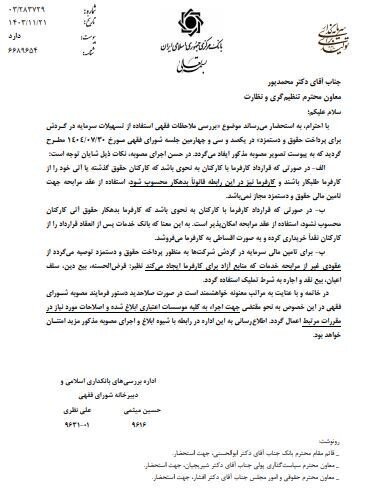 شماره: ۰۳/۲۸۳۷۲۹
تاریخ: ۱۴۰۳/۱۱/۲۱
پیوست: دارد
شناسه: ۶۶۸۹۶۵۴
بانک مرکزی جمهوری اسلامی ایران
بسمه‌تعالی
جناب آقای دکتر محمدپور
معاون محترم تنظیم‌گری و نظارت
سلام علیکم؛
با احترام، به استحضار می‌رساند موضوع «بررسی ملاحظات فقهی استفاده از تسهیلات سرمایه در گردش
برای پرداخت حقوق و دستمزد» در یکصد و سی و چهارمین جلسه شورای فقهی مورخ ۱۴۰۴/۰۷/۳۰ مطرح
گردید که به پیوست تصویر مصوبه مذکور ایفاد می‌گردد. در حسن اجرای مصوبه، نکات ذیل شایان توجه است:
الف- در صورتی که قرارداد کارفرما با کارکنان به نحوی باشد که کارکنان حقوق گذشته یا آتی خود را از
کارفرما طلبکار باشند و کارفرما نیز در این رابطه قانوناً بدهکار محسوب شود، استفاده از عقد مرابحه جهت
تامین مالی حقوق و دستمزد مجاز نمی‌باشد.
ب- در صورتی که قرارداد کارفرما با کارکنان به نحوی باشد که کارفرما بدهکار حقوق آتی کارکنان
محسوب نشود، استفاده از عقد مرابحه امکان‌پذیر است. به این معنا که بانک خدمات پس از انعقاد قرارداد را از
کارکنان نقداً خریداری کرده و به صورت اقساطی به کارفرما می‌فروشد.
پ- برای تامین مالی سرمایه در گردش شرکت‌ها به منظور پرداخت حقوق و دستمزد توصیه می‌گردد از
عقودی غیر از مرابحه خدمات که منابع آزاد برای کارفرما ایجاد می‌کند نظیر: قرض‌الحسنه، بیع دین، سلف
اعیان، بیع نقد و اجاره به شرط تملیک استفاده گردد.
در خاتمه و با عنایت به مراتب معنونه خواهشمند است در صورت صلاحدید دستور فرمایند مصوبه شورای
فقهی در این خصوص به نحو مقتضی جهت اجراء به کلیه موسسات اعتباری ابلاغ شده و اصلاحات مورد نیاز در
مقررات مرتبط اعمال گردد. اطلاع‌رسانی به این اداره در رابطه با شیوه ابلاغ و اجرای مصوبه مذکور مزید امتنان
خواهد بود.
اداره بررسی‌های بانکداری اسلامی و
دبیرخانه شورای فقهی
حسین میثمی علی نظری
۹۶۱۶ ۹۶۳۱-۰۱
رونوشت:
- قائم مقام محترم بانک جناب آقای دکتر ابوالحسنی، جهت استحضار.
- معاون محترم سیاست‌گذاری پولی جناب آقای دکتر شیریجیان، جهت استحضار.
- معاون محترم حقوقی و امور مجلس جناب آقای دکتر افشار، جهت استحضار.